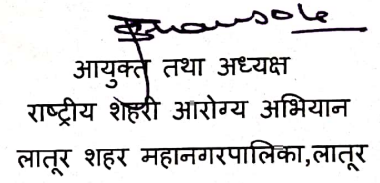 आयुक्त तथा अध्यक्ष
राष्ट्रीय शहरी आरोग्य अभियान
लातूर शहर महानगरपालिका,लातूर